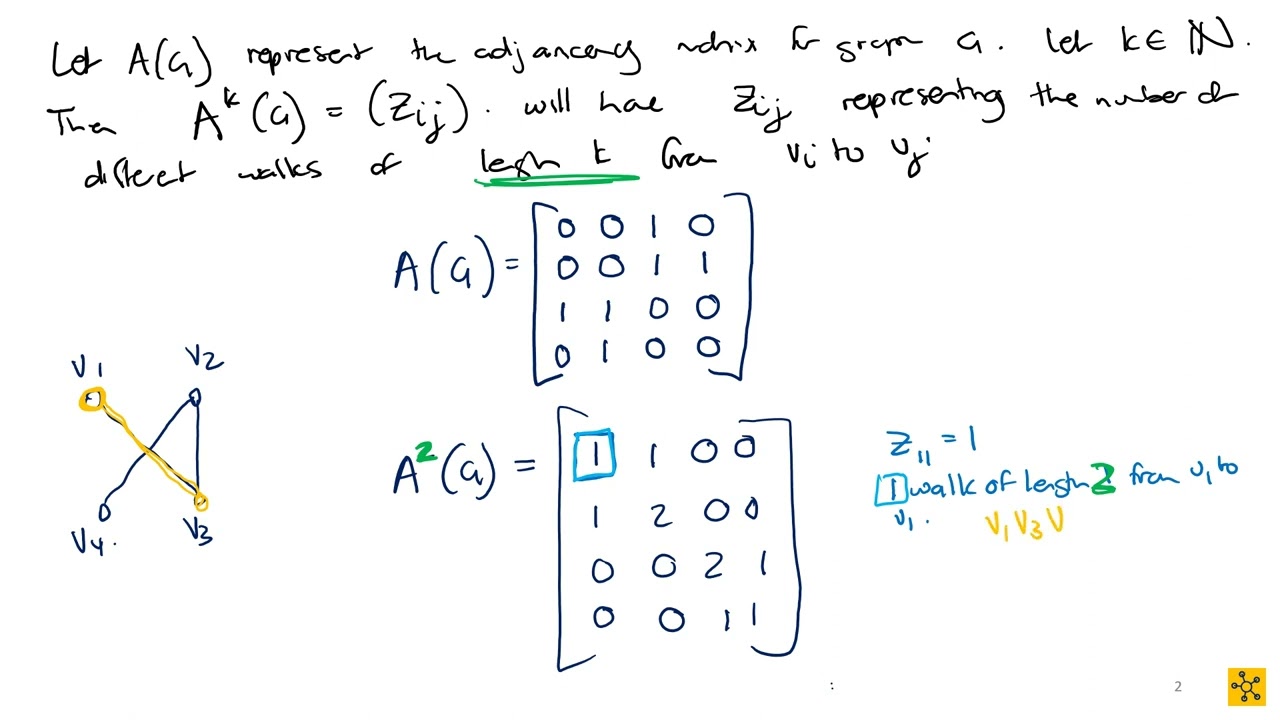 Let A(G) represent the adjancency matrix for graph G. Let k ∈ ℕ.
Then A^k(G) = (Z_ij). will have Z_ij representing the number of
different walks of length k from v_i to v_j
A(G) = [0 0 1 0
0 0 1 1
1 1 0 0
0 1 0 0]
V1 V2
V4. V3
A^2(G) = [1 1 0 0
1 2 0 0
0 0 2 1
0 0 1 1]
Z_11 = 1
1 walk of length 2 from v_1 to
v_1. V_1 V_3 V
:
2